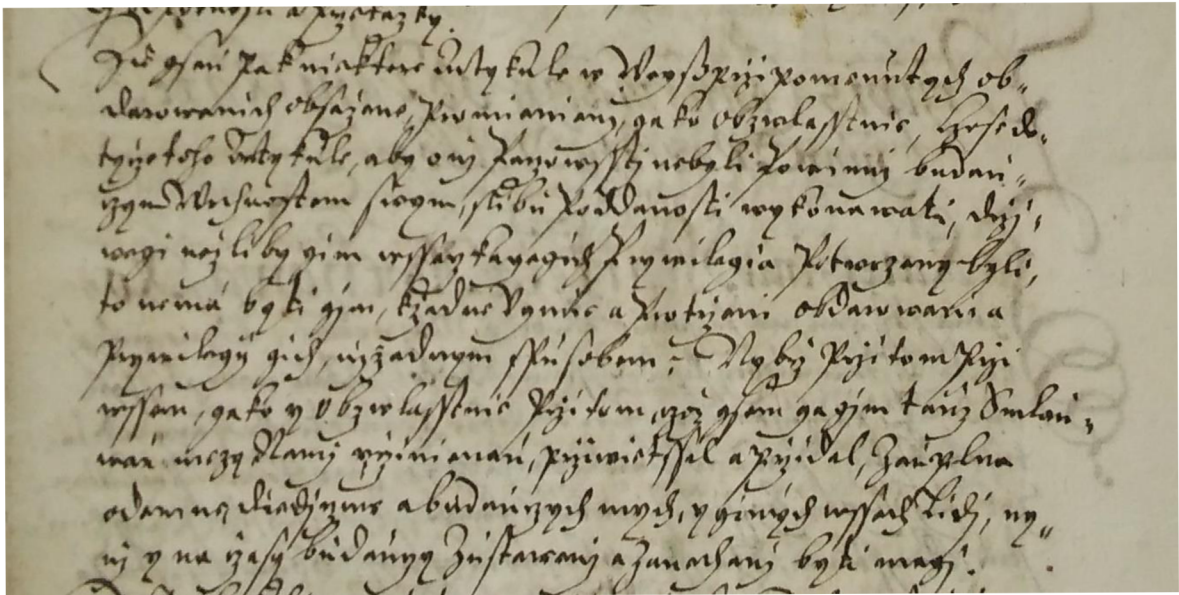 a Przekazky.
Zie gsau pak niektere Artykule w Weyssprzipomenutych ob-
darowanich obsazene, promieniany, gako obzwlasstnie, czo se do-
tycze toho Artykule, aby oni Panowssti nebyli Powinni budau-
czym Wrchnostem swym, slibu Poddanosti wykonawati, drzi-
wegi nezliby gim wssazkagegich Prywilegia Potwrzeny byli,
to nema byti gim, k zadne Vgmie a Protiweni obdarowani a
Prywilegij gich, niyzadnym spusobem: Nybrz Przi tom Przi
wssem, gako y Obzwlasstnie Przi tom, czoz gsem ga gim tauz Smlau-
wau mezy Nami vczinienau, przywietssil a przidal, Zauplna
odemne, diediczuw a budauczych mych, y ginych wssech Lidi, ny-
ni y na czasy budauczy Zustaweni a Zanechani byti magi.